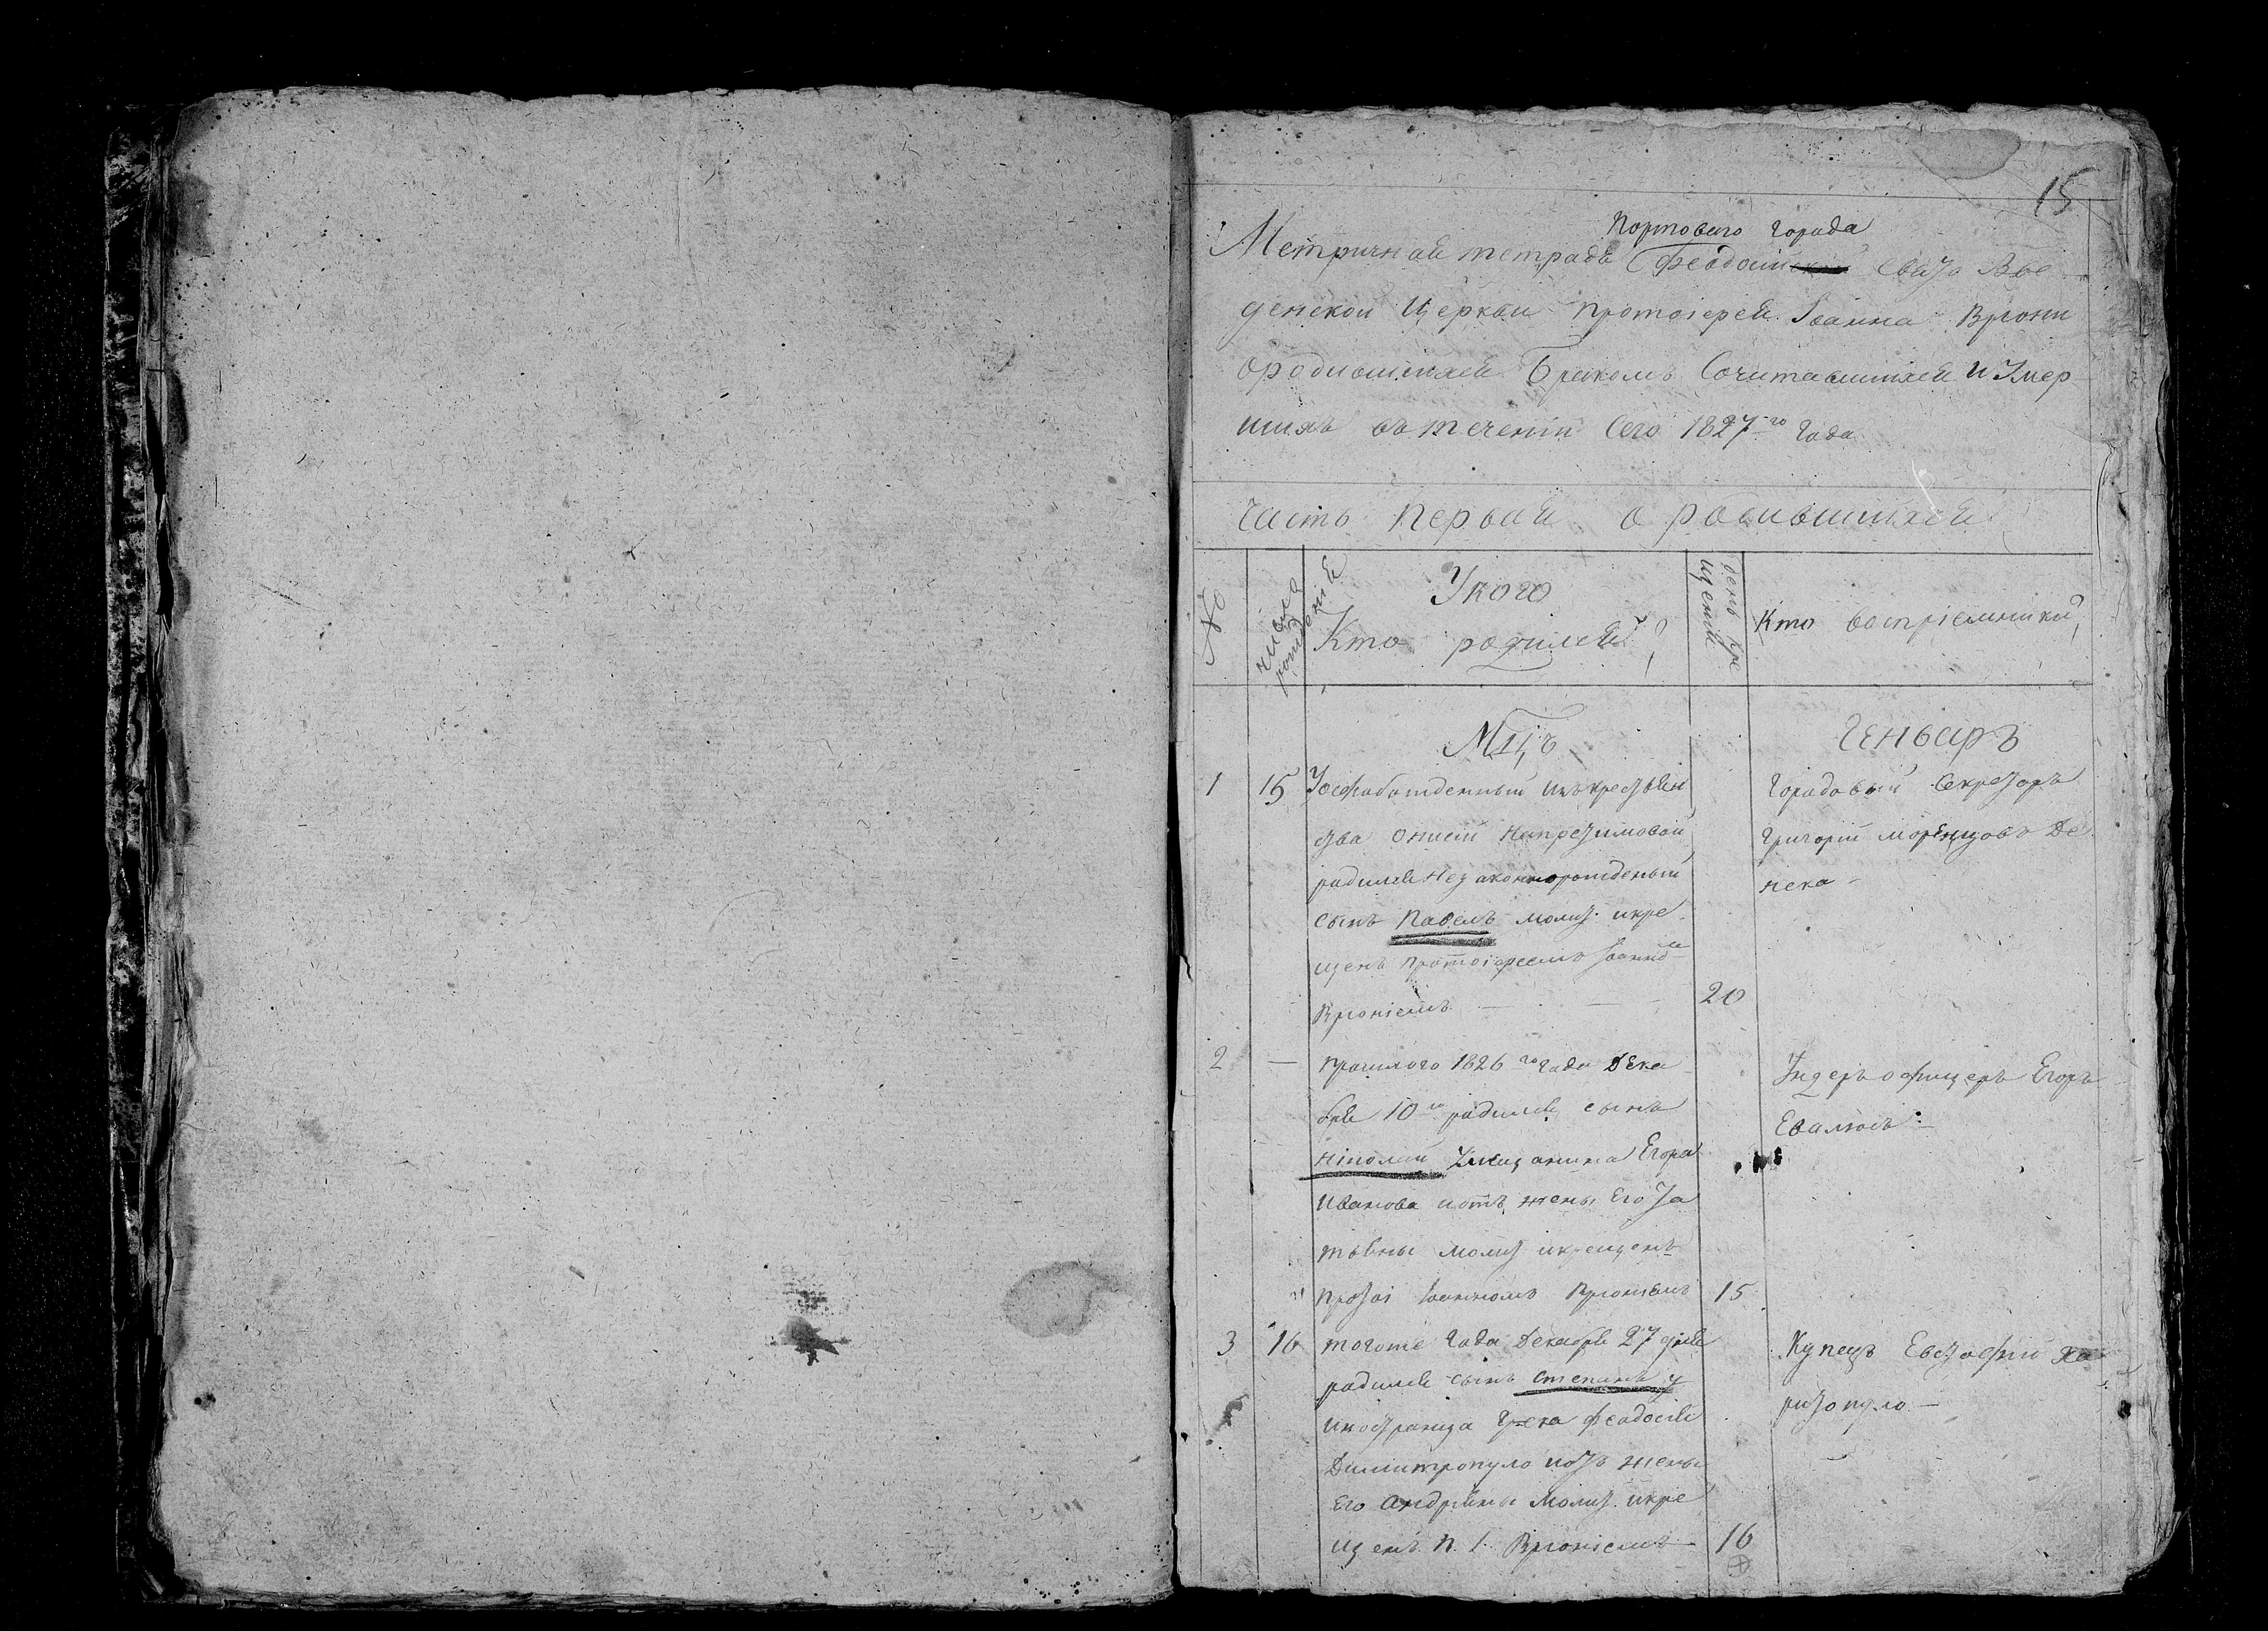 15
Портоваго города
Метричная тетрадь Феодосий свято Вве
денской церкви протоіерея Іоанна Вріони
ородившихся Бракомъ Сочитавшихся и Умер
шихъ въ теченіи Сего 1827го года
Часть Первая о родившихся
№
число рожденія
У кого
Кто родился?
день кре
щенія
Кто воспріемники,
Мцъ
Генварь
1 15 Уосвабожденный изъ крестьян
ства родился незаконнорожденый
сынъ Павелъ молит. икре
щенъ протоіереемъ Іоанно
Вріоніемъ 20
Городовый Секретарь
Григорій
2 — Прошлого 1826го года Дека
бря 10го родился сынъ
Ніколай Умещанина Егора
Иванова иотъ жены Его Та
тьяны молит икрещенъ
протоі Іоанномъ Вріоніемъ 15
Ундеръ офицеръ Егоръ
3 16 тогоже года Декабря 27 дня
родился сынъ Степанъ у
иностранца Грека Феодосія
Димитропуло иотъ жены
Его Андріяны молит. икре
щенъ П. І. Вріоніемъ — 16
Купецъ Евстафій Ха
ритопуло —